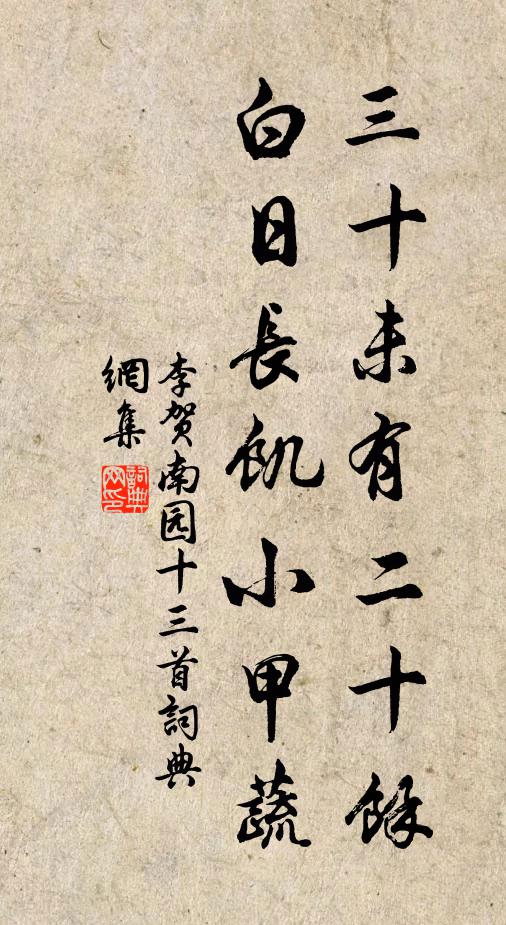 三十未有二十餘
白日長飢小甲蔬
李贺南园十三首詞典
網集
詞典网印